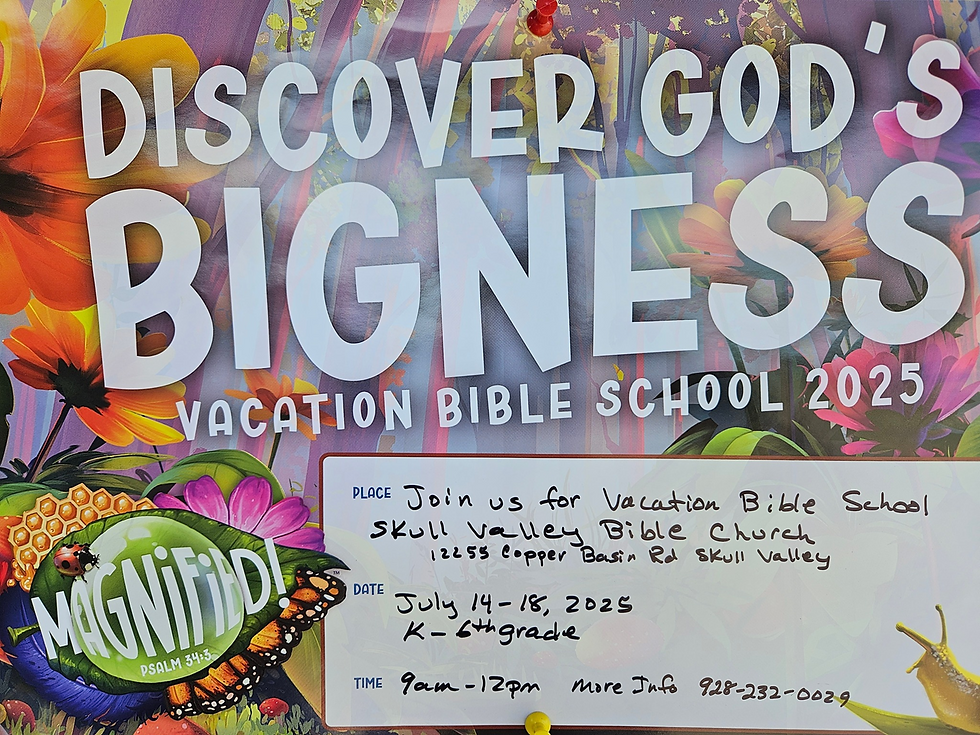 DISCOVER GOD'S
BIGNESS
VACATION BIBLE SCHOOL 2025
MAGNiFiED!
PSALM 34:3
PLACE Join us for Vacation Bible School
Skull Valley Bible Church
12255 Copper Basin Rd Skull Valley
DATE
July 14-18, 2025
K-6th grade
TIME 9am-12pm More Info 928-232-0029